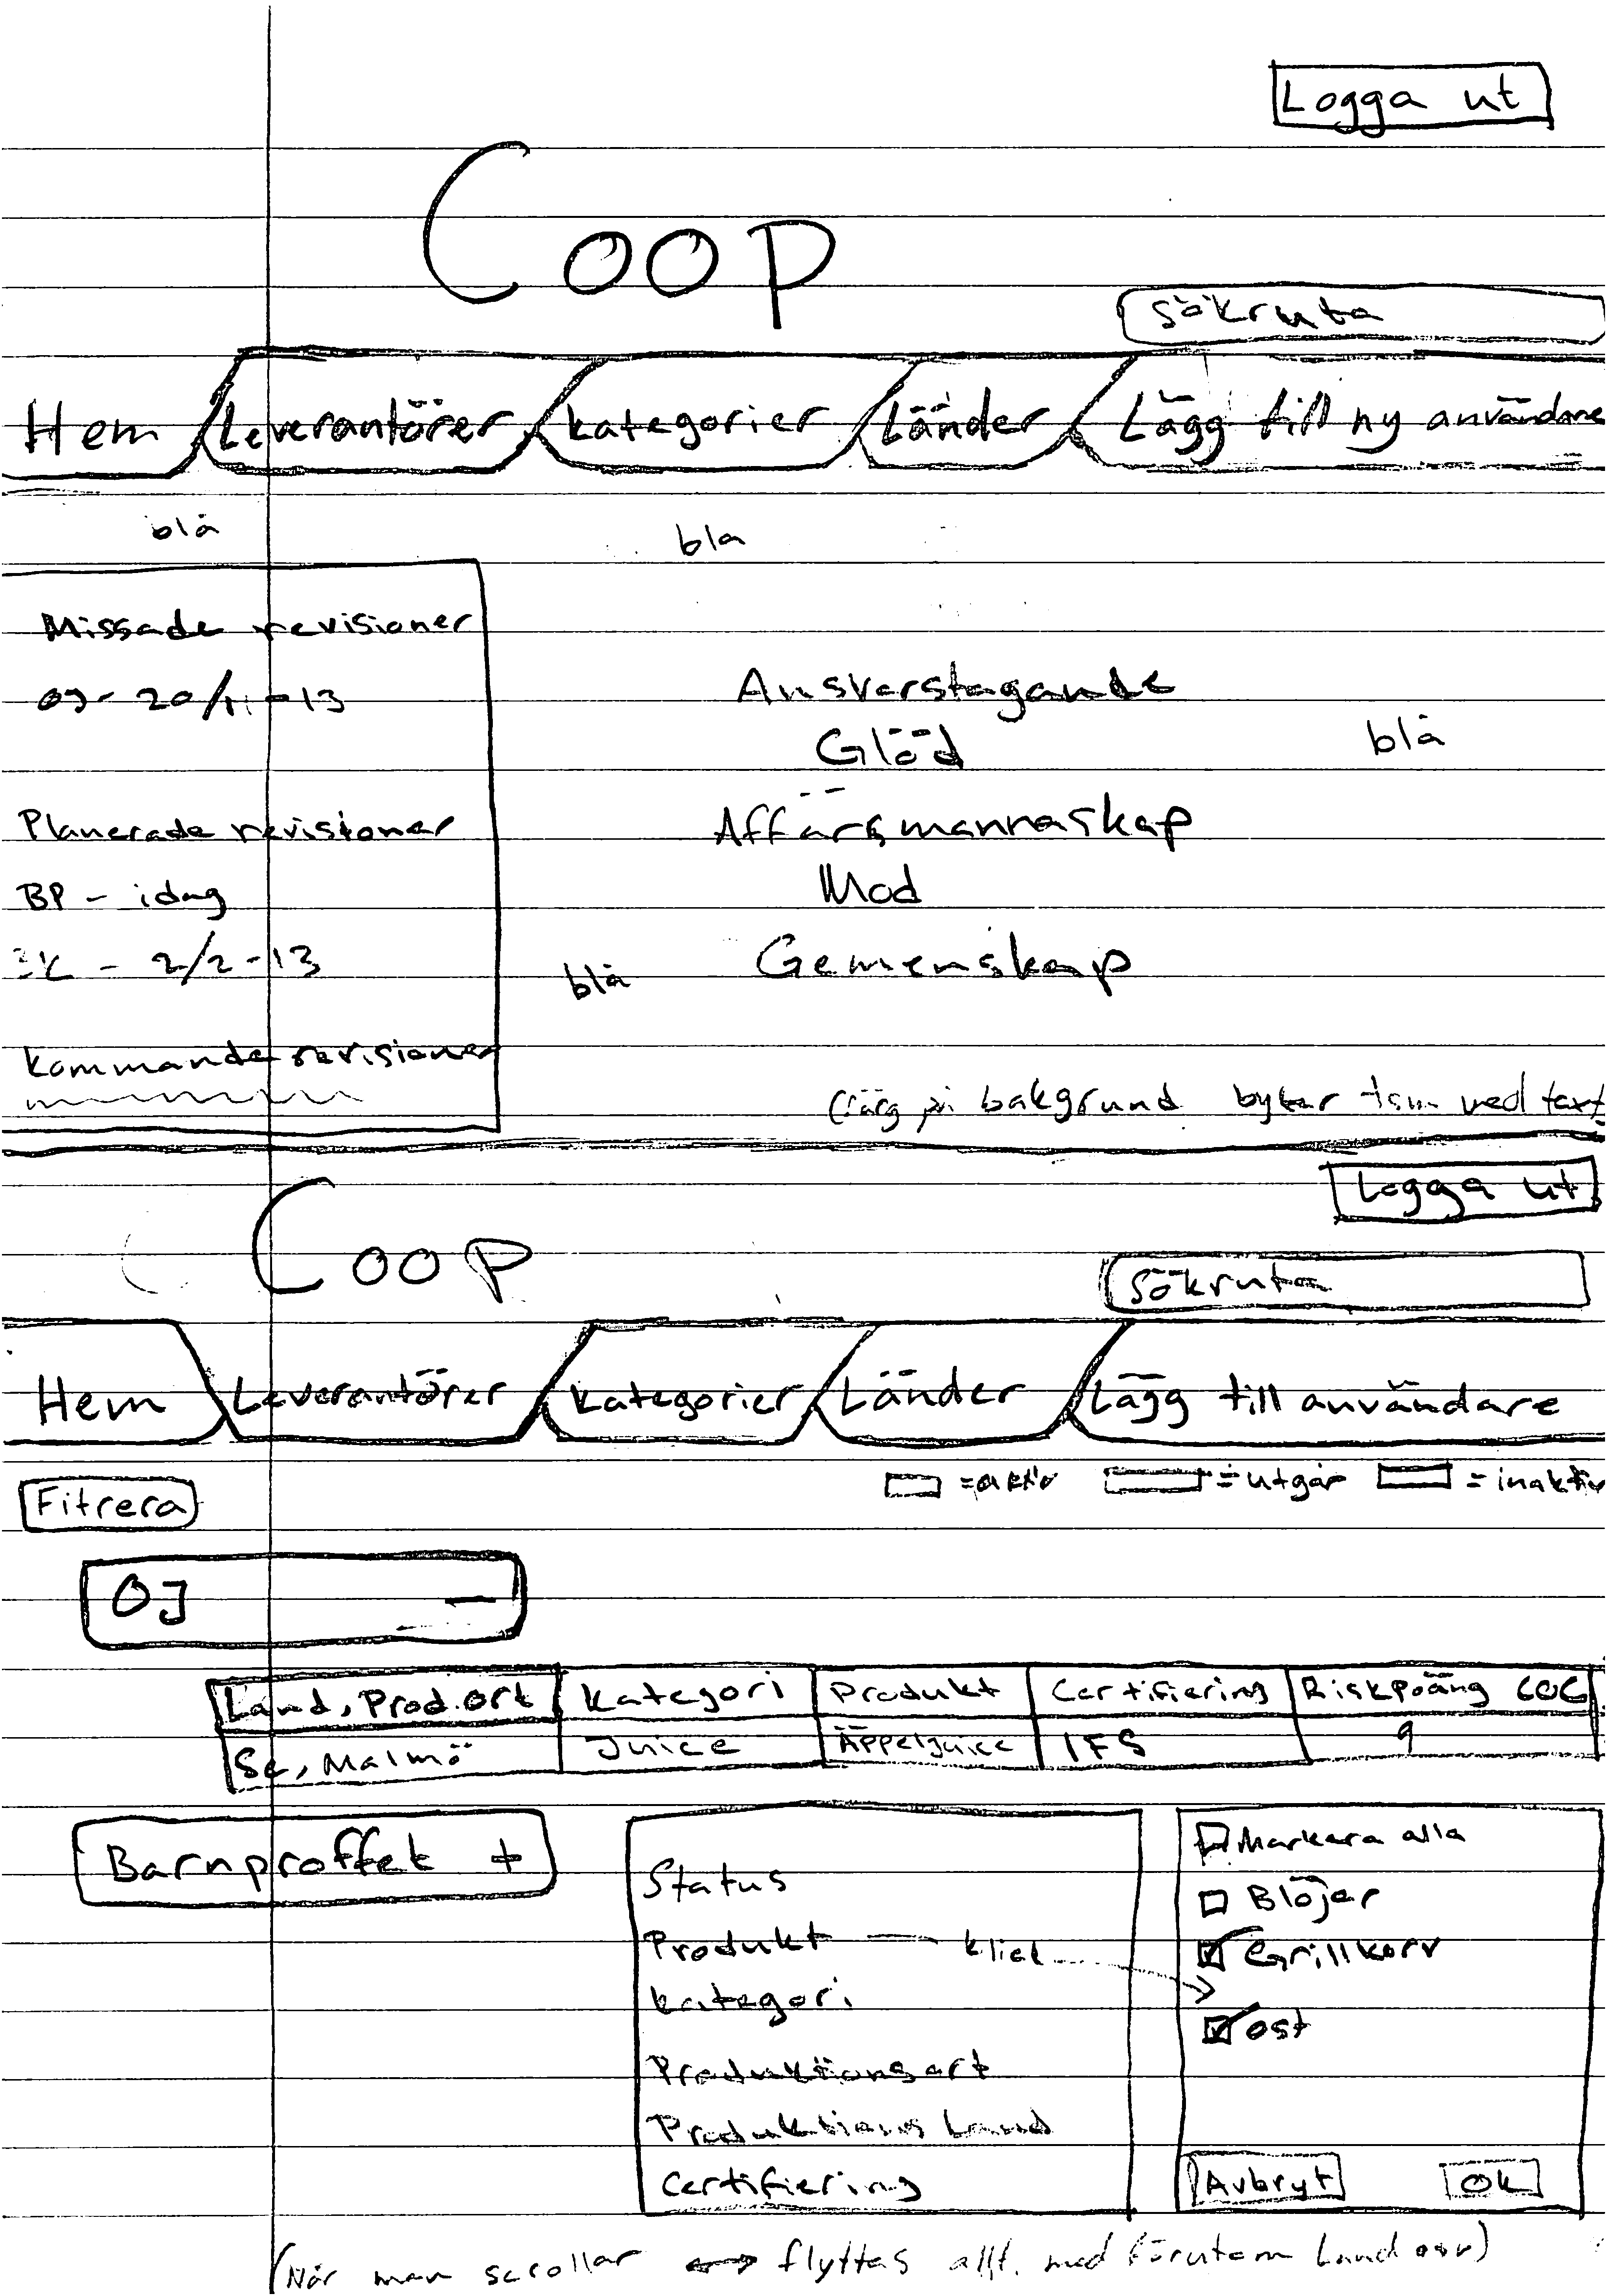 Logga ut
Coop
Sökruta
Hem Leverantörer kategorier Länder Lägg till ny användare
blå bla
Missade revisioner
OJ - 20/11-13
Ansvarstagande
Glöd
blå
Planerade revisioner
Affärsmannaskap
BP - idag
Mod
- 2/2-13
blå
Gemenskap
Kommande revisioner
(färg på bakgrund byter med text
Logga ut
Coop
Sökruta
Hem Leverantörer kategorier Länder Lägg till användare
Fitrera
= aktiv = utgår = inaktiv
OJ -
Land, Prod.ort Kategori Produkt Certifiering Riskpoäng COC
Se, Malmö Juice Äppeljuice IFS 9
Barnproffet +
Status
Produkt klick
kategori
Produktionsort
Produktions Land
Certifiering
Markera alla
Blöjer
Grillkorv
ost
Avbryt OK
(När man scrollar ↔ flyttas allt. med förutom Land osv)